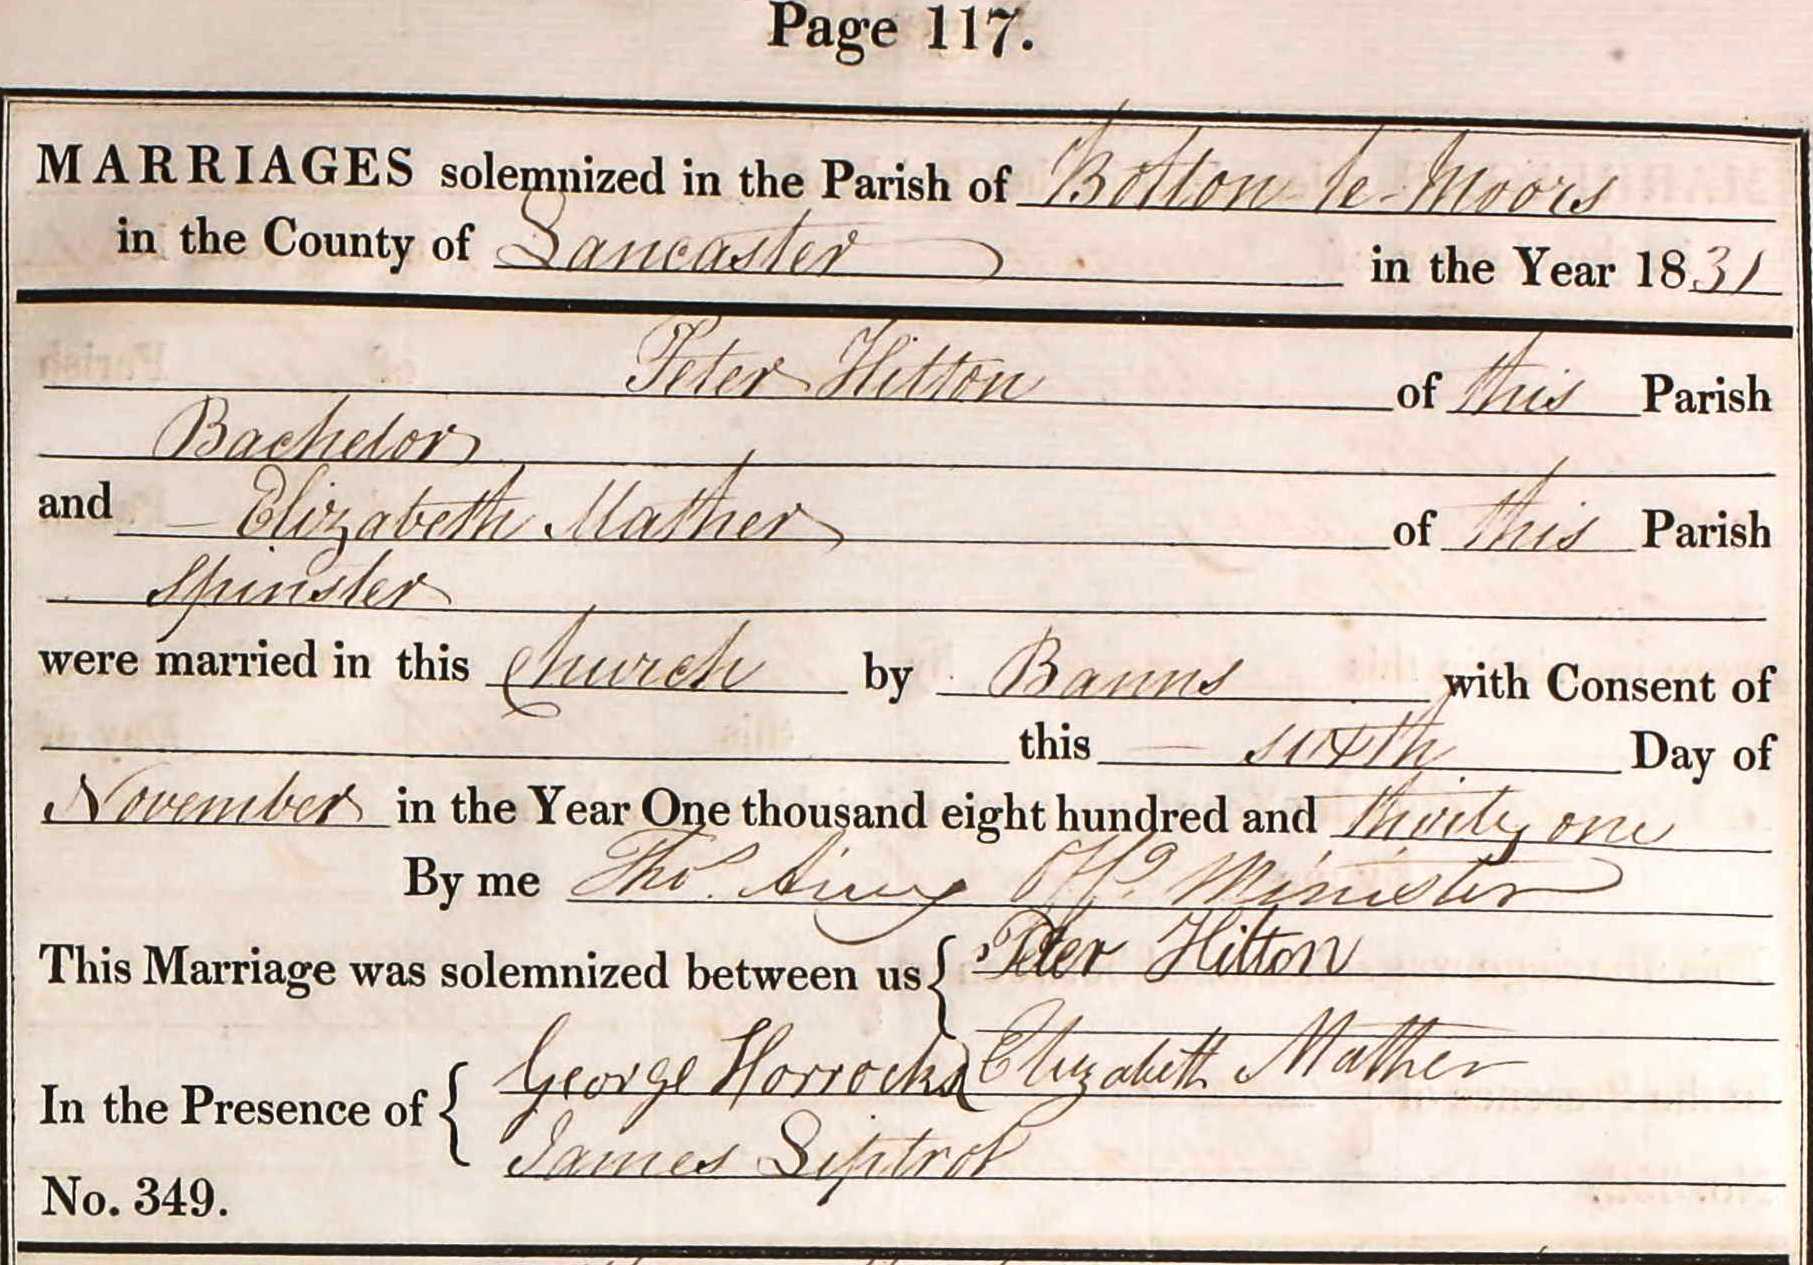 Page 117.
MARRIAGES solemnized in the Parish of Bolton-le-Moors
in the County of Lancaster in the Year 1831
Peter Hilton of this Parish
Bachelor
and Elizabeth Mather of this Parish
Spinster
were married in this Church by Banns with Consent of
this sixth Day of
November in the Year One thousand eight hundred and thirty one
By me Thos. Airey Offg. Minister
This Marriage was solemnized between us { Peter Hilton
Elizabeth Mather
In the Presence of { George Horrocks
James Siptrot
No. 349.